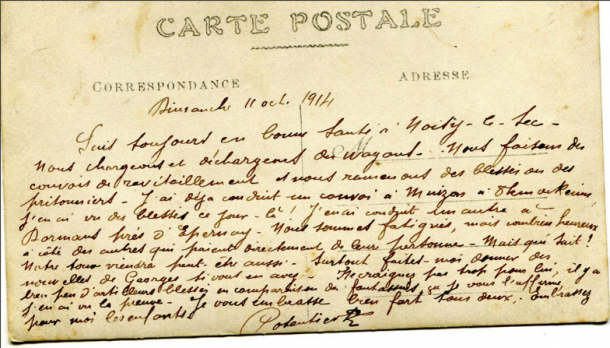 CARTE POSTALE
CORRESPONDANCE
ADRESSE
Dimanche 11 oct. 1914
Suis toujours en bonne santé à Noisy-le-Sec-
Nous chargeons et déchargeons des wagons - Nous faisons des
convois de ravitaillement et nous ramenons des blessés ou des
prisonniers - J'ai déjà conduit un convoi à Muizon à 8km de Reims
j'en ai vu des blessés ce jour-là! J'en ai conduit un autre à
Dormans près d'Epernay - Nous sommes fatigués, mais combien heureux
à côté des autres qui paient directement de leur personne - Mais qui sait!
Notre tour viendra peut être aussi - Surtout faites-moi donner des
nouvelles de Georges si vous en avez - Ne craignez pas trop pour lui, il y a
bien peu d'artilleurs blessés en comparaison des fantassins, ça je vous l'affirme
j'en ai vu la preuve - Je vous embrasse bien fort tous deux. Embrassez
pour moi les enfants.